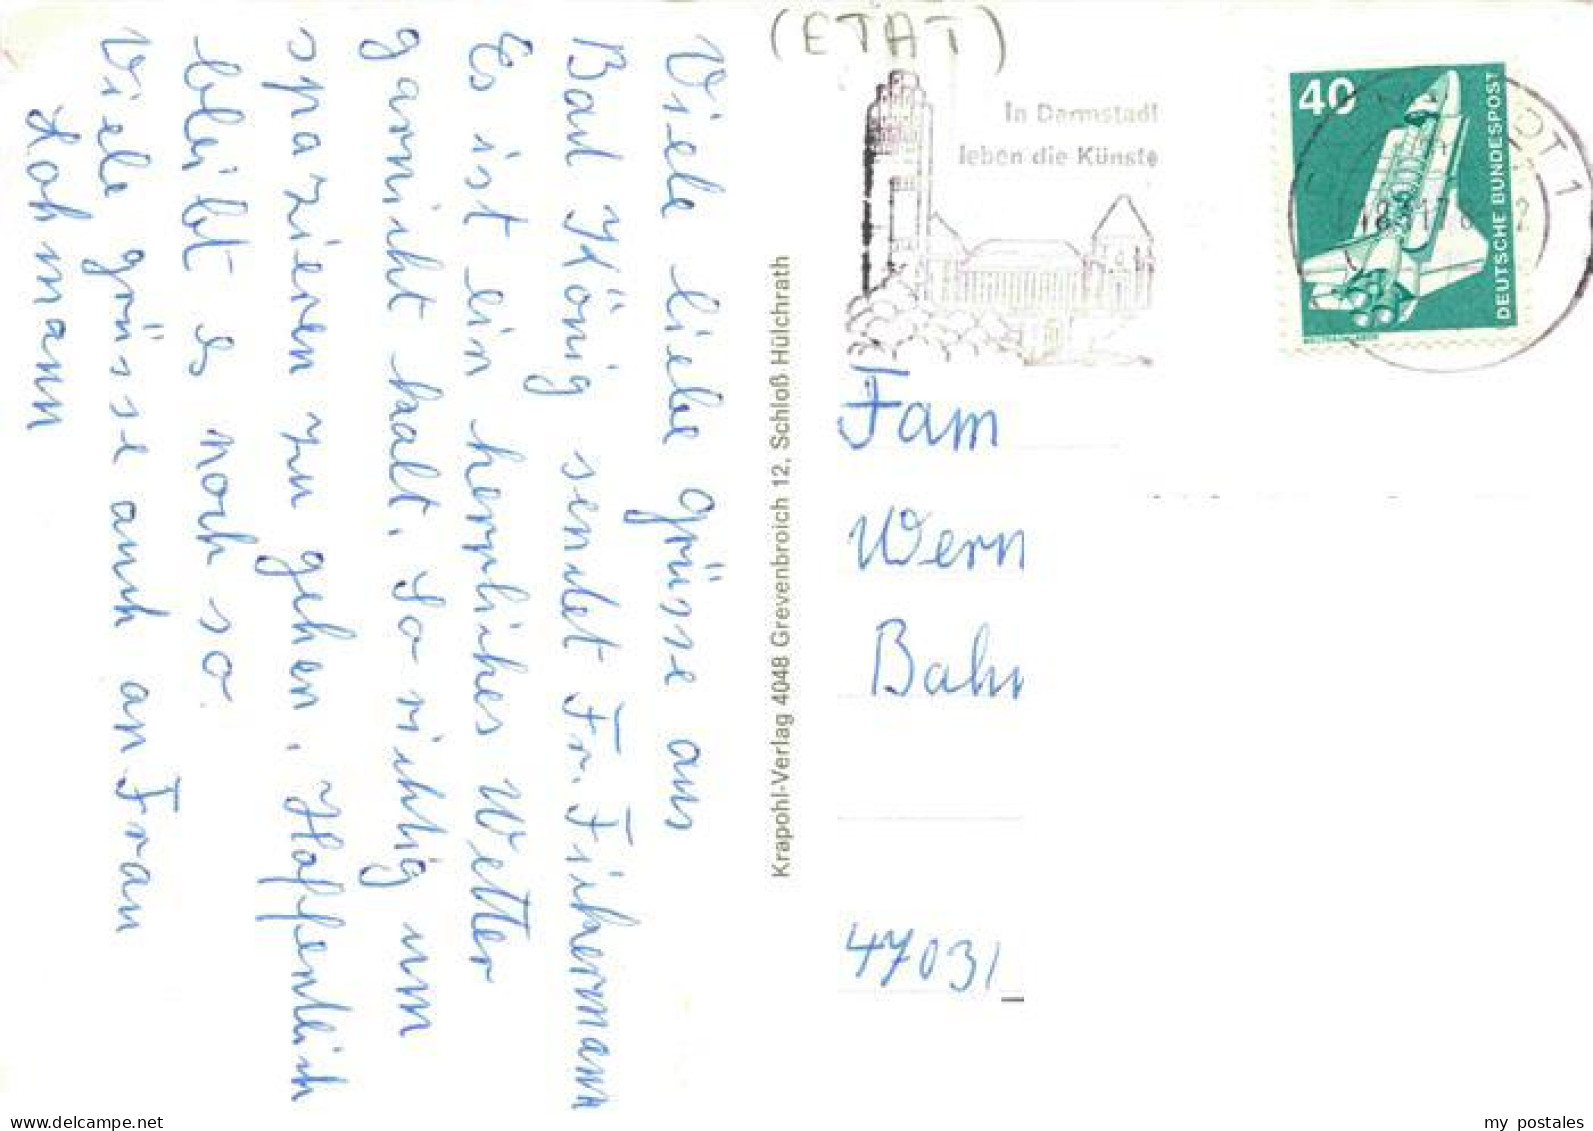 Viele liebe grüsse aus
Bad König sendet Fr. Fihermann
Es ist ein herrliches Wetter
garnicht kalt. So richtig um
spazieren zu gehen. Hoffentlich
bleibt es noch so.
Viele grüsse auch an Frau
Lohmann
Krapohl-Verlag 4048 Grevenbroich 12, Schloß Hülchrath
(ETAT)
In Darmstadt
leben die Künste
40
DEUTSCHE BUNDESPOST
DT 1
Fam
Wern
Bahn
47031
delcampe.net
my postales